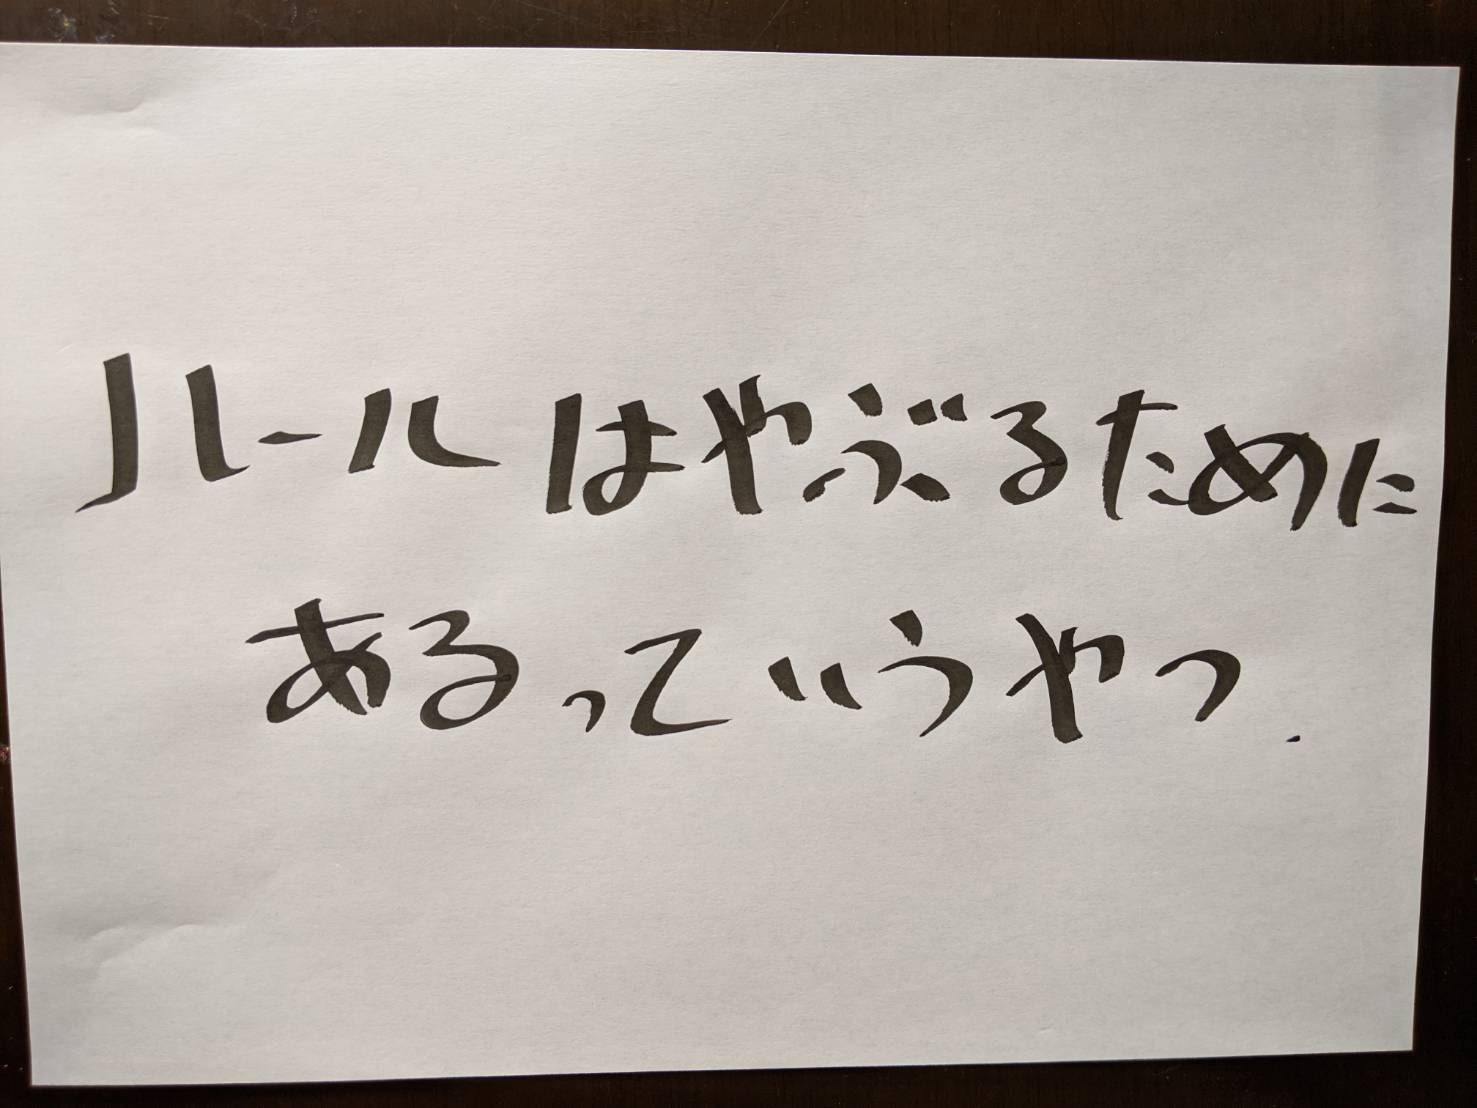 ルールはやぶるために
あるっていうやつ.